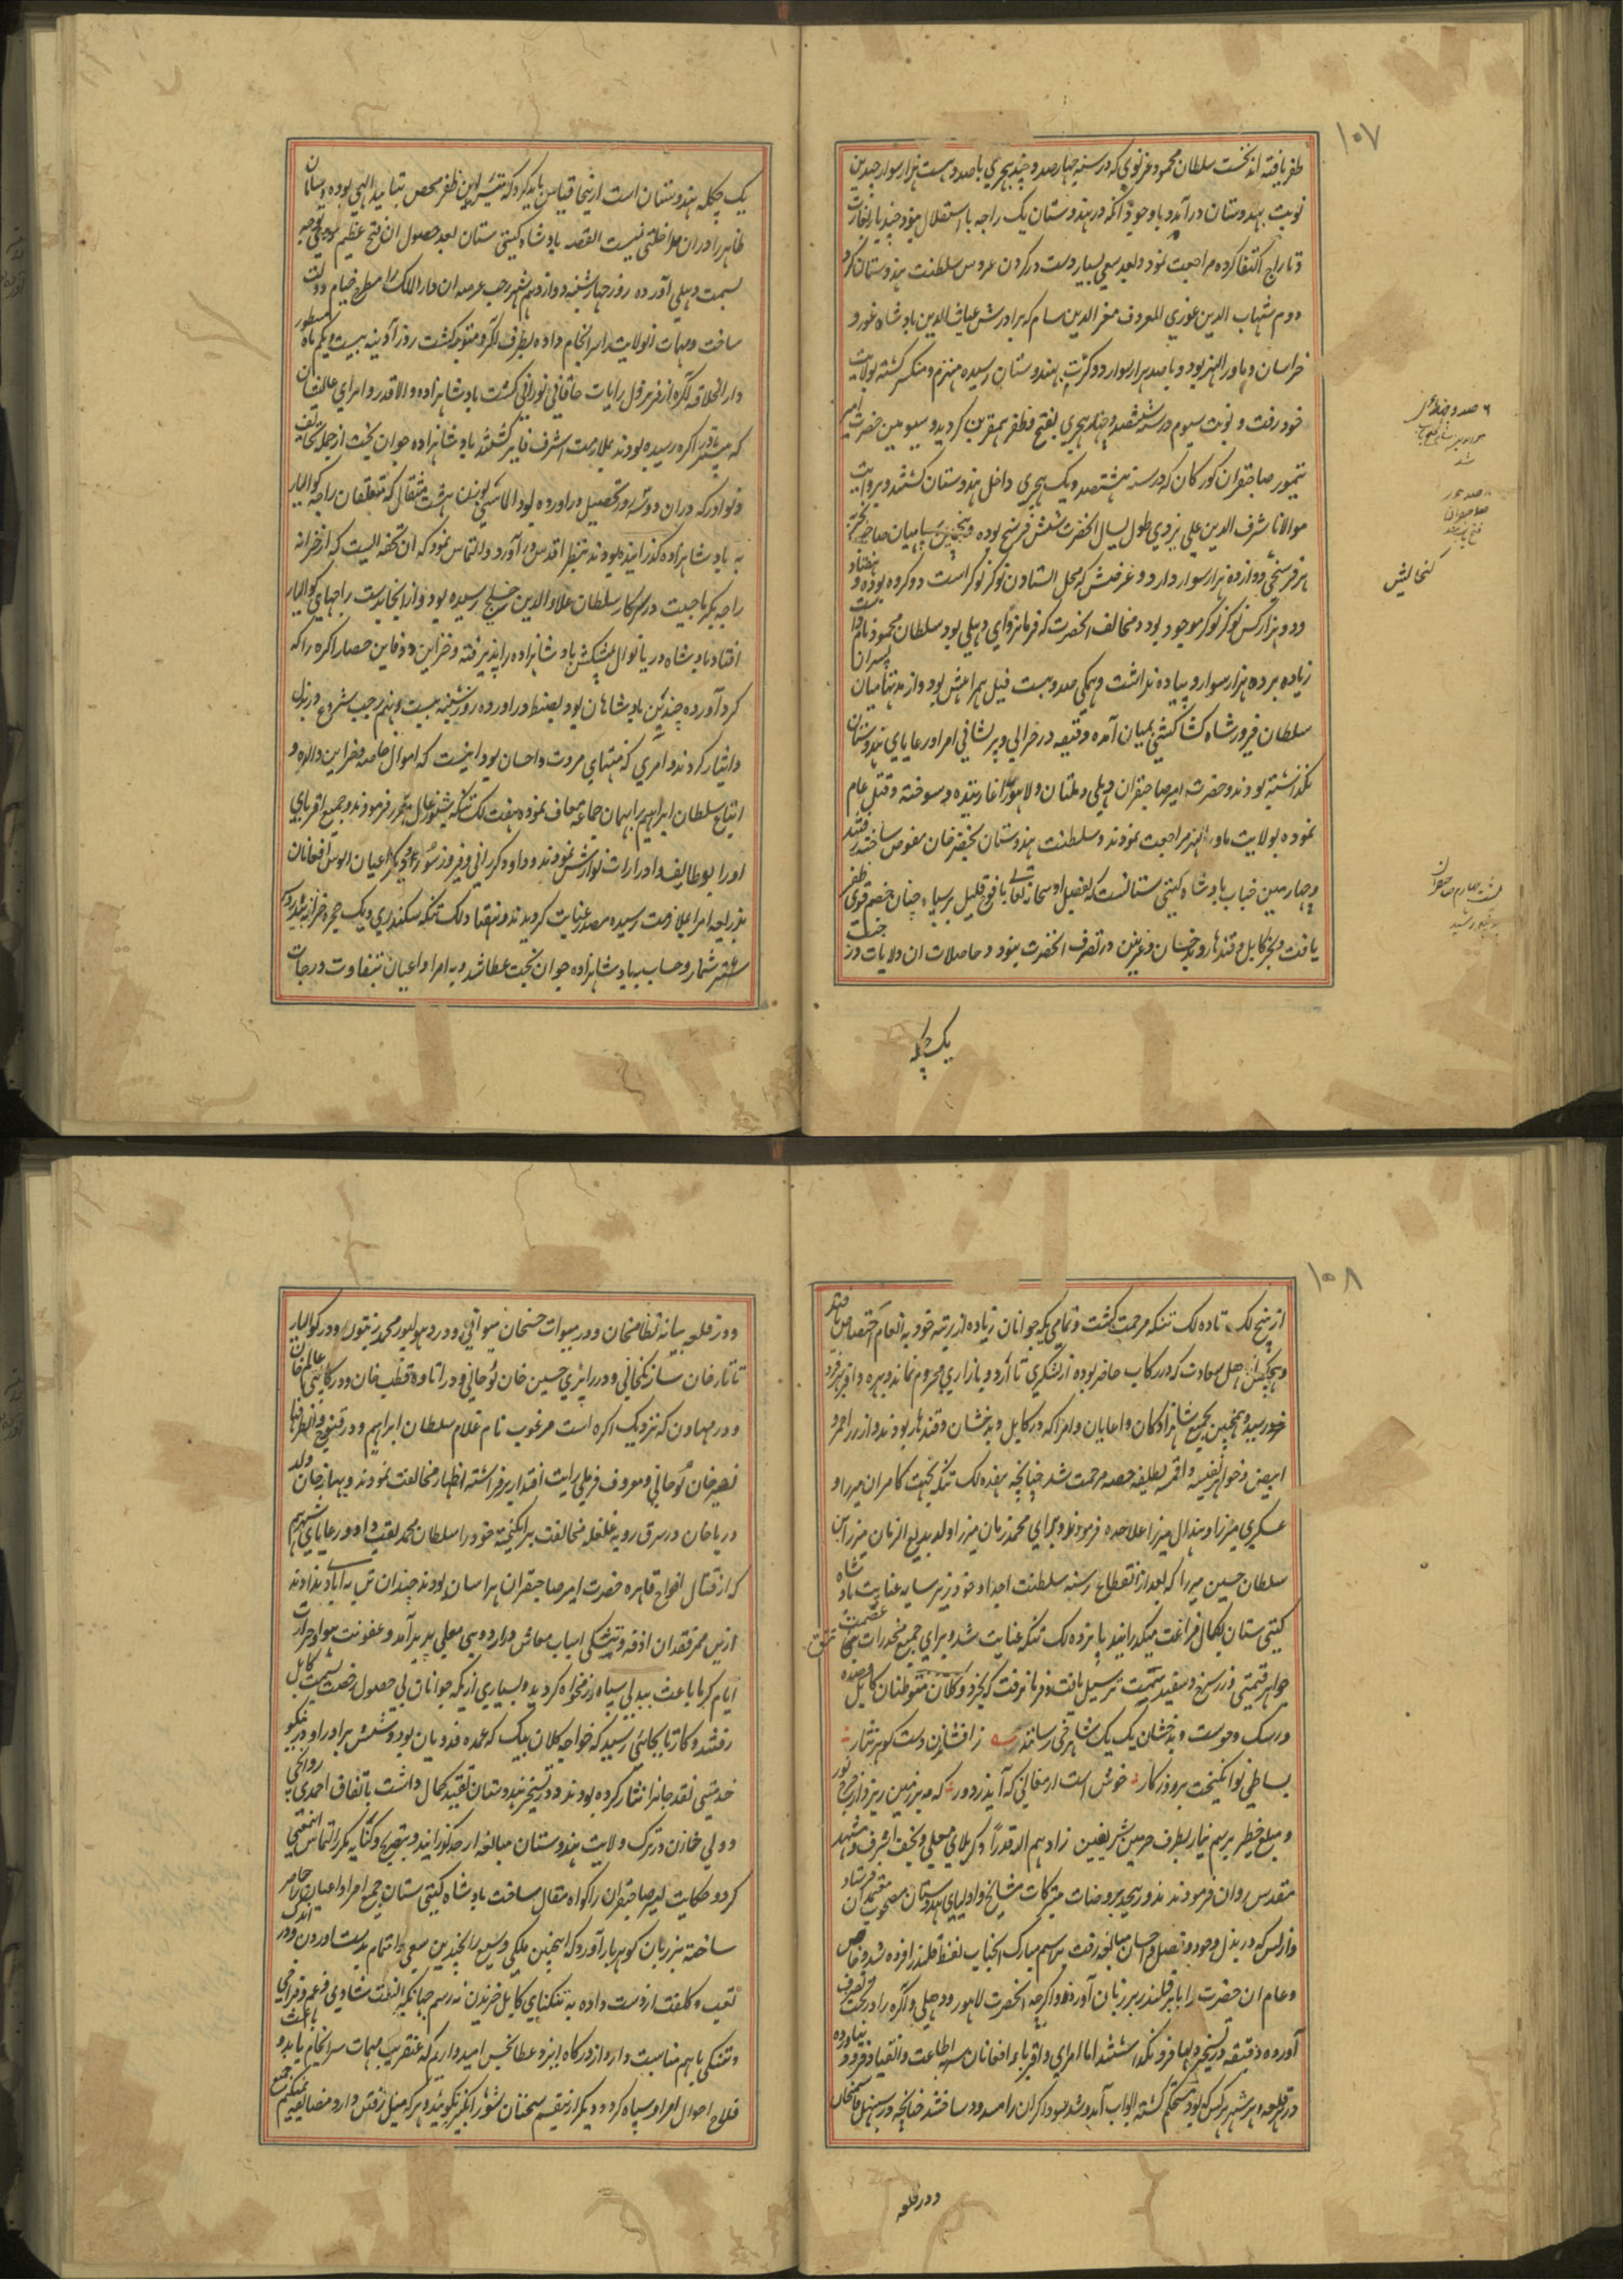 ۱۰۷
ظفر یافته اند نخست سلطان محمود غزنوی که در سنه چهار صد و چند هجری با صد و بیست هزار سوار چندین
نوبت بهندوستان در آمد و با وجود آنکه در هندوستان یک راجه با استقلال نبود چند بار بغارت
و تاراج اکتفا کرده مراجعت نمود و بعد سعی بسیار دست در کردن عروس سلطنت هندوستان کرد
دوم شهاب الدین غوری المعروف معز الدین سام که برادرش غیاث الدین بادشاه غور و
خراسان و ماور النهر بود و با صد هزار سوار دو کرت بهندوستان رسیده منهزم و منکسر کشته بولایت
خود رفت و نوبت سیوم در سنه ششصد و چند هجری بفتح و ظفر مقرین کردید و سیومین حضرت امیر
تیمور صاحبقران کورکان که در سنه هشتصد و یک هجری داخل هندوستان کشتند و بروایت
مولانا شرف الدین علی یزدی طول یسال انحضرت شش فرسخ بوده و پنجین سپاهیان صاحب تجربه
هر فرسخی دوازده هزار سوار دارد و عرضش که محل استادن نوکر نوکر است دو کروه بوده و هفتاد
و دو هزار کس نوکر نوکر موجود بود و مخالف انحضرت که فرمانروای دهلی بود سلطان محمود نام داشت
زیاده بر ده هزار سوار و پیاده نداشت و همکی صد و بیست فیل همراهش بود و از مدتها میان پسران
سلطان فیروز شاه کشاکشی بمیان آمده دقیقه در خرابی و پریشانی امرا و رعایای هندوستان
نکذاشته بودند و حضرت امیر صاحبقران دهلی و ملتان و لاهور را غارتیده و سوخته و قتل عام
نموده بولایت ماور النهر مراجعت نمودند و سلطنت هندوستان بخضر خان مفوض ساخته رفتند
و چهارمین جناب بادشاه کیتی ستانست که بفضل او سبحانه تعالی با فوج قلیل بر سپاه چنان خصم قوی ظفر
یافت و بجز کابل و قندهار و بدخشان و غزنین در تصرف انحضرت نبود و حاصلات ان ولایات در جنب
یک چکله
کنجالیش
یک چکله هندوستان است ازینجا قیاس باید کرد که تیسر این ظفر محض بتایید الهی بوده و سامان
ظاهر را در ان مداخلتی نیست القصه بادشاه کیتی ستان بعد حصول ان فتح عظیم موکب توجه
بسمت دهلی آورده روز چهار شنبه دوازدهم شهر رجب عرصه ان دار الملک را مطرح خیام دولت
ساخت و مهمات انولایت را سر انجام داده بطرف اکره متوجه کشت روز آدینه بیست و یکم ماه مسطور
دار الخلافه اکره از فر نزول رایات خاقانی نورانی کشت بادشاهزاده والا قدر و امرای عالیشان
که پیشتر باکره رسیده بودند بملازمت اشرف فایز کشتند بادشاهزاده جوان بخت از جمله تحایف
و نوادر که در ان دو سه روز تحصیل در اورده بود الماسی بوزن هشت مثقال که متعلقان راجه کوالیار
به بادشاهزاده کذرانیده بودند بنظر اقدس در آورد و التماس نمود که ان تحفه ایست که از خزانه
راجه بکرماجیت در سرکار سلطان علاو الدین خلجی رسیده بود و از انجا بدست راجهای کوالیار
افتاد بادشاه دریا نوال پیشکش بادشاهزاده را پذیرفته و خزاین و دفاین حصار اکره را که
کرد آورده چندین بادشاهان بود بضبط در اورده روز شنبه بیست و نهم رجب شروع در بذل
و ایثار کردند و امری که منتهای مروت و احسان بود اینست که اموال خاصه و خزاین والده و
اتباع سلطان ابراهیم را بهمان جماعه معاف نموده هفت لک تنکه سیورغال مقرر فرمودند و جمیع اقربای
او را بوظایف و ادرارات نوازش نمودند و داود کررانی و فیروز سور و دیگر اعیان الوس افغانان
بذریعه امرا بملازمت رسیده مصدر عنایت کردیدند و هفتاد لک تنکه سکندری و یک حجره خزانه نذر که
شمار و حساب به بادشاهزاده جوان بخت عطا شد و به امرا و اعیان بتفاوت درجات
۱۰۸
از پنج لک تا ده لک تنکه مرحمت کشت و تمامی یکه جوانان زیاده از رتبه خود به انعام اختصاص یافتند
و هیچکس از اهل سعادت که در رکاب حاضر بوده از لشکری تا اردو بازاری محروم نماند و بهره وافر بهر فرد
خود رسید و همچنین بجمیع شاهزادکان و اعیان و امرا که در کابل و بدخشان و قندهار بودند و از زر احمر و
ابیض و جواهر نفیسه و اقمشه لطیفه حصه مرحمت شد چنانچه هفده لک تنکه بجهت کامران میرزا و
عسکری میرزا و هندال میرزا علاحده فرمودند و برای محمد زمان میرزا ولد بدیع الزمان میرزا ابن
سلطان حسین میرزا که بعد از انقطاع رشته سلطنت اجداد خود در زیر سایه عنایت بادشاه
کیتی ستان بکمال فراغت میکذرانید پانزده لک تنکه عنایت شد و برای جمیع مخدرات تتق عصمت
جواهر قیمتی و زر سرخ و سفید سمت ترسیل یافت و فرمان رفت که بخرد و کلان متوطنان کابل و صده
ورسک و خوست و بدخشان یک یک شاهرخی رسانند ز افشاندن دست کوهر نثار
بساطی نو انکیخت بر روزکار خوش است ارمغانی که آید ز دور که مه بر زمین ریزد از چرخ نور
و مبلغ خطیر برسم نیاز بطرف حرمین شریفین زادهم الله قدرًا و کربلای معلی و نجف اشرف و مشهد
مقدس روان فرمودند و نذور بیحد بروضات متبرکات مشایخ و اولیای هندوستان مصحوب معتمدان فرستاد
و از بس که در بذل وجود و تفضل و احسان مبالغه رفت بر اسم مبارک انجناب لفظ قلندر افزوده شد و خاص
و عام ان حضرت را بابر قلندر بر زبان آوردند و اکرچه انحضرت لاهور و دهلی و اکره را در تحت تصرف
آورده دقیقه در تسخیر دلها فرو نکذاشتند اما امرای و اقربای افغانان سر باطاعت و انقیاد فرو نیاورده
در قلعه و هر شهر هر کس که بود مستحکم کشته ابواب آمد و شد سوداکران را مسدود ساختند چنانچه در سنبهل قاسمخان
و در قلعه
و در قلعه بیانه نظامخان و در میوات حسنخان میواتی و در دهولپور محمد زیتون و در کوالیار
تاتار خان سارنکخانی و در راپری حسین خان نوحانی و در اتاوه قطب خان و در کالپی عالم خان
و در مهاون که نزدیک اکره است مرغوب نام غلام سلطان ابراهیم و در قنوج و انطرفها
نصیر خان نوحانی و معروف فرملی رایت اقتدار بر افراشته اظهار مخالفت نمودند و بهار خان ولد
دریا خان در شرق رویه غلغله مخالفت برانکیخته خود را سلطان محمد لقب داد و رعایای شهر هم
که از قتال افواج قاهره حضرت امیر صاحبقران هراسان بودند چندان تن به آبادی ندادند
ازین ممر فقدان اذقه و تنکی اسباب معاش در اردوی معلی پدید آمد و عفونت هوا و حرارت
ایام کرما باعث بیدلی سپاه رزمخواه کردید و بسیاری از یکه جوانان بی حصول رخصت بسمت کابل
رفتند و کار تا بجائی رسید که خواجه کلان بیک که عمده فدویان بود و شش برادر او در نیکو
خدمتی نقد جانرا نثار کرده بودند و در تسخیر هندوستان تقید کمال داشت باتفاق احمدی پروانچی
و ولی خازن در ترک ولایت هندوستان مبالغه از حد کذرانید و بتصریح و کنایه مکرر التماس اینمعنی
کرد و حکایت امیر صاحبقران را کواه مقال ساخت بادشاه کیتی ستان جمیع امرا و اعیان را حاضر
ساخته بر زبان کوهر بار آورد که اینچنین ملکی وسیع را بچندین سعی و اهتمام بدست اوردن و در اندک
تعب و کلفت از دست داده به تنکنای کابل خزیدن نه رسم جهانکیریست شادی و غم و فراخی
و تنکی باهم مناسبت دارد از درکاه ایزد عطا بخش امیدواریم که عنقریب مهمات سر انجام یابد و باعث
فلاح احوال امرا و سپاه کردد و دیکر ازینقسم سخنان شور انکیز نکویند و هر که میل رفتن دارد مضایقه نمیکنیم جمیع